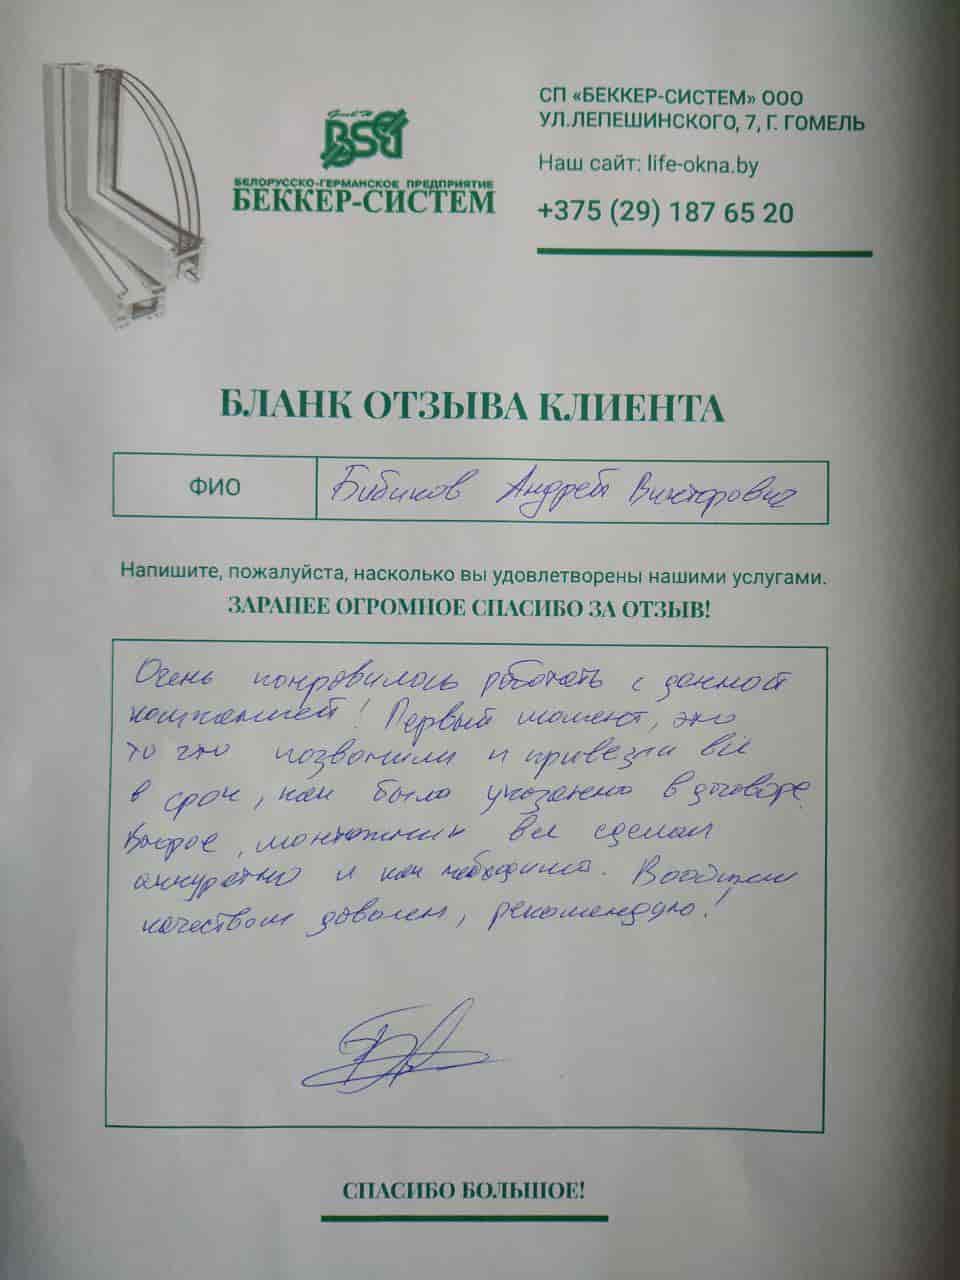 СП «БЕККЕР-СИСТЕМ» ООО
УЛ.ЛЕПЕШИНСКОГО, 7, Г. ГОМЕЛЬ
Наш сайт: life-okna.by
+375 (29) 187 65 20
BSG
БЕЛОРУССКО-ГЕРМАНСКОЕ ПРЕДПРИЯТИЕ
БЕККЕР-СИСТЕМ
БЛАНК ОТЗЫВА КЛИЕНТА
ФИО
Бибиков Андрей Викторович
Напишите, пожалуйста, насколько вы удовлетворены нашими услугами.
ЗАРАНЕЕ ОГРОМНОЕ СПАСИБО ЗА ОТЗЫВ!
Очень понравилось работать с данной
компанией! Первый момент, это
то что позвонили и привезли все
в срок, как было указано в договоре.
Второе, монтажники все сделали
аккуратно и как необходимо. Вообщем
качеством доволен, рекомендую!
СПАСИБО БОЛЬШОЕ!